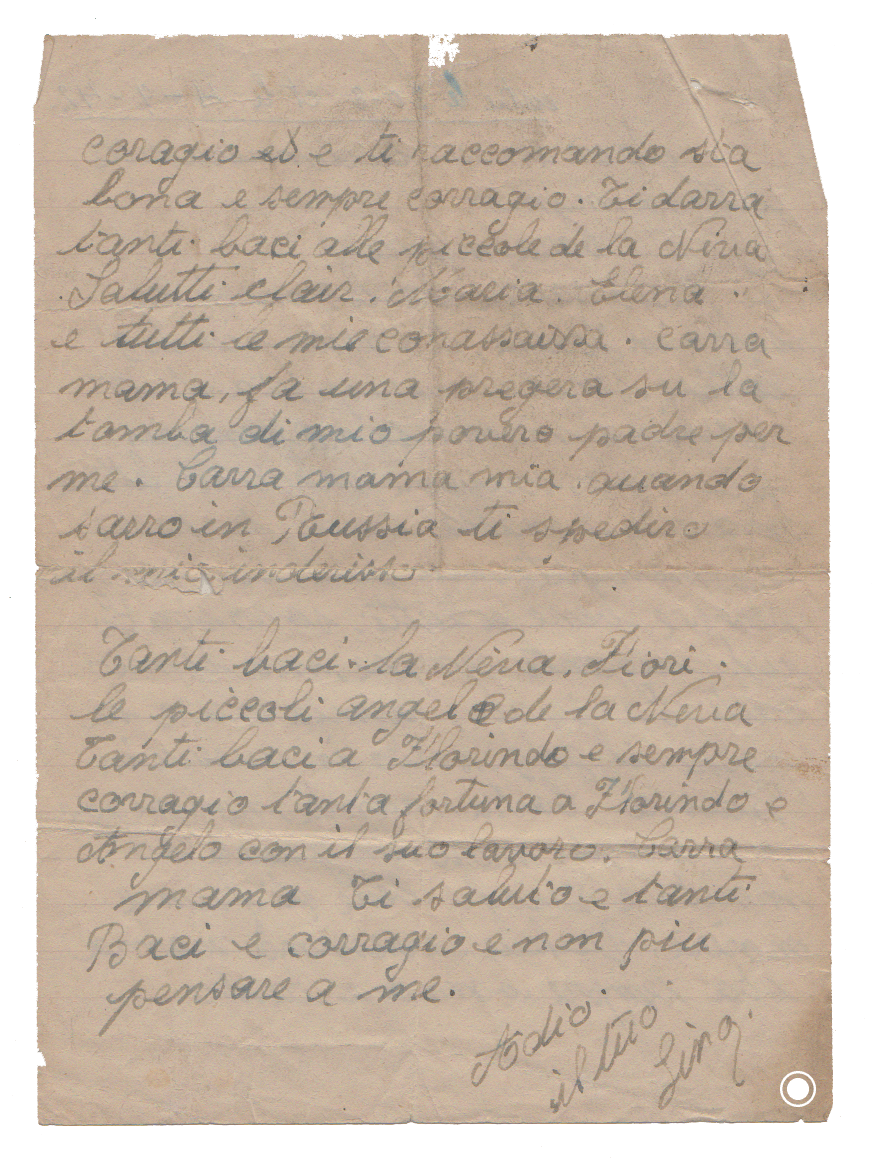 coragio ed e ti raccomando sta
bona e sempre corragio. Ti darra
tanti baci alle piccole de la Niva
Salutti clair. Maria. Elena.
e tutti le mie conassaissa. Carra
mama, fa una pregera su la
tomba di mio povero padre per
me. Carra mama mia quando
saero in Russia ti spediro
il mio inderisso
Tanti baci. la Nèva. Fiori.
le piccoli angelo de la Neva
Tanti baci a Florindo e sempre
corragio tanta fortuna a Florindo e
Angelo con il suo lavoro. Carra
mama Ti saluto e tanti
Baci e corragio e non piu
pensare a me.
Adio.
il tuo
Gino.